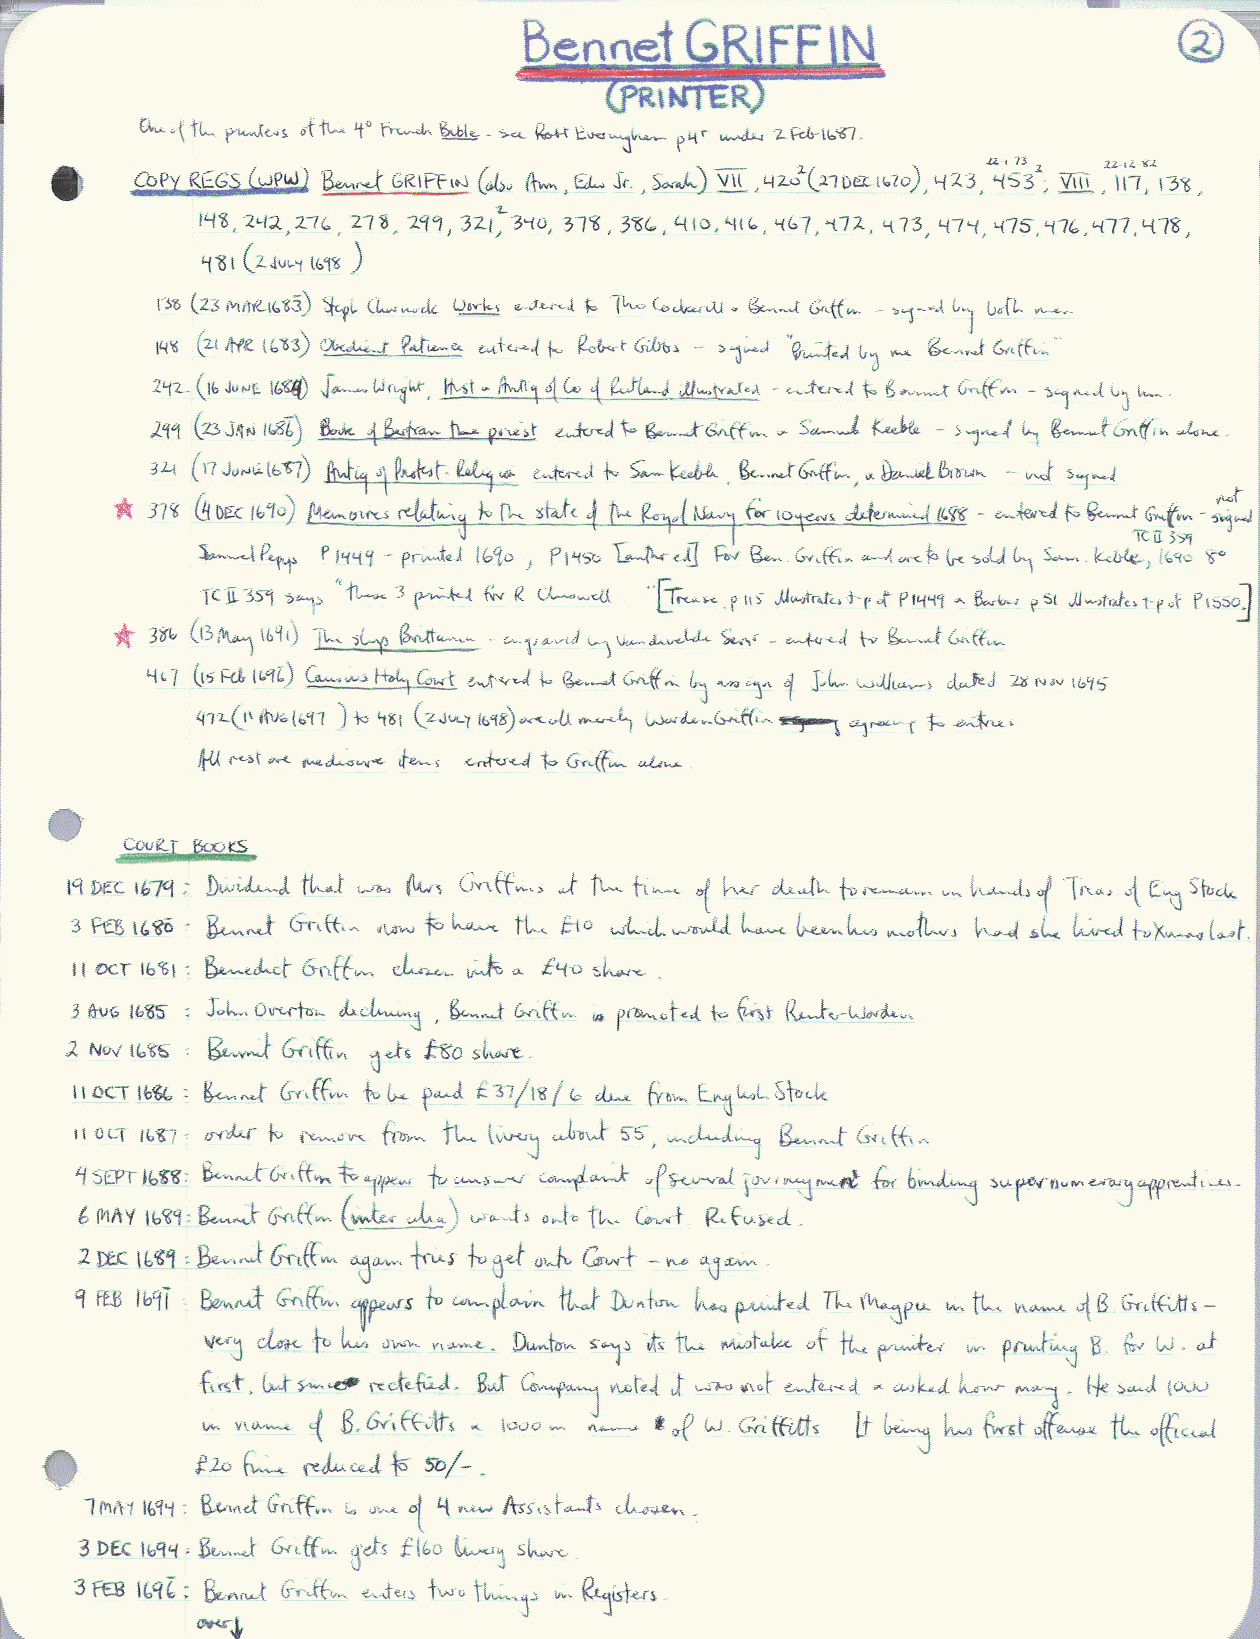 Bennet GRIFFIN
2
(PRINTER)
One of the printers of the 4° French Bible - see Robt Everingham p4r under 2 Feb 1687.
22.1.73 22.12.82
COPY REGS (WPW) Bennet GRIFFIN (also Ann, Edw Jr., Sarah) VII, 420² (27 DEC 1670), 423, 453²; VIII, 117, 138,
148, 242, 276, 278, 299, 321², 340, 378, 386, 410, 416, 467, 472, 473, 474, 475, 476, 477, 478,
481 (2 JULY 1698)
138 (23 MAR 1683) Steph Charnock Works entered to Tho Cockerill & Bennet Griffin - signed by both men
148 (21 APR 1683) Obedient Patience entered to Robert Gibbs - signed "Printed by me Bennet Griffin"
242 (16 JUNE 1684) James Wright, Hist & Antiq of Co of Rutland illustrated - entered to Bennet Griffin - signed by him.
299 (23 JAN 1686) Booke of Bertram the priest entered to Bennet Griffin & Samuel Keeble - signed by Bennet Griffin alone.
321 (17 JUNE 1687) Antiq of Protest. Religion entered to Sam Keeble, Bennet Griffin, & Daniel Brown - not signed
378 (4 DEC 1690) Memoires relating to the state of the Royal Navy for 10 years determined 1688 - entered to Bennet Griffin - not signed
TC II 359
Samuel Pepys P1449 - printed 1690; P1450 [anthr ed] For Ben. Griffin and are to be sold by Sam. Keble, 1690 8°
TC II 359 says "these 3 printed for R Chiswell "[Trease, p115 illustrates t-p of P1449 & Barber p51 illustrates t-p of P1550.]
386 (13 May 1691) The ship Brittannia - engraved by Vandevelde Senr - entered to Bennet Griffin
467 (15 Feb 1696) Causins Holy Court entered to Bennet Griffin by assign of John Williams dated 28 NOV 1695
472 (11 AUG 1697) to 481 (2 JULY 1698) are all merely Warden Griffin agreeing to entries
All rest are mediocre items entered to Griffin alone.
COURT BOOKS
19 DEC 1679: Dividend that was Mrs Griffins at the time of her death to remain in hands of Treas. of Eng Stock
3 FEB 1680: Bennet Griffin now to have the £10 which would have been his mothers had she lived to Xmas last.
11 OCT 1681: Benedict Griffin chosen into a £40 share.
3 AUG 1685: John Overton declining, Bennet Griffin is promoted to first Renter-Warden
2 NOV 1685: Bennet Griffin gets £80 share.
11 OCT 1686: Bennet Griffin to be paid £37/18/6 due from English Stock
11 OCT 1687: order to remove from the livery about 55, including Bennet Griffin
4 SEPT 1688: Bennet Griffin to appear to answer complaint of several journeymen for binding supernumerary apprentices.
6 MAY 1689: Bennet Griffin (inter alia) wants onto the Court. Refused.
2 DEC 1689: Bennet Griffin again tries to get onto Court - no again.
9 FEB 1691: Bennet Griffin appears to complain that Dunton has printed The Magpie in the name of B. Griffitts -
very close to his own name. Dunton says its the mistake of the printer in printing B. for W. at
first, but since rectefied. But Company noted it was not entered & asked how many. He said 1000
in name of B. Griffitts & 1000 in name of W. Griffitts It being his first offense the official
£20 fine reduced to 50/-.
7 MAY 1694: Bennet Griffin is one of 4 new Assistants chosen.
3 DEC 1694: Bennet Griffin gets £160 livery share.
3 FEB 1696: Bennet Griffin enters two things in Registers.
over↓